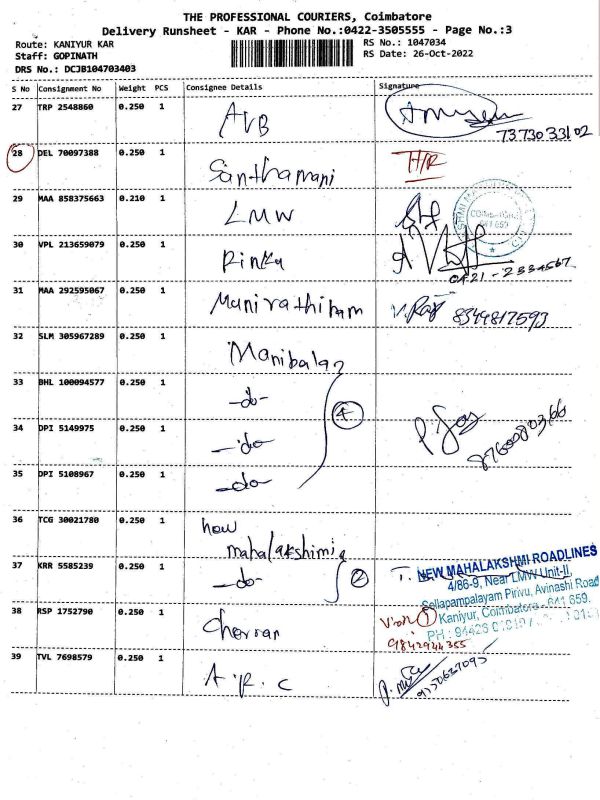 THE PROFESSIONAL COURIERS, Coimbatore
Delivery Runsheet - KAR - Phone No.:0422-3505555 - Page No.:3
Route: KANIYUR KAR
RS No.: 1047034
Staff: GOPINATH
RS Date: 26-Oct-2022
DRS No.: DCJB104703403
S No Consignment No Weight PCS Consignee Details Signature
27 TRP 2548860 0.250 1 AVB
7373033102
28 DEL 70097388 0.250 1 Santhamani H/R
29 MAA 858375663 0.210 1 LMW
COIMBATORE
641 659
30 VPL 213659079 0.250 1 Rinku
0421-2334567
31 MAA 292595067 0.250 1 Munirathinam V. Raj 8344817593
32 SLM 305967289 0.250 1 Manibalan
33 BHL 100094577 0.250 1 -do-
4
34 DPI 5149975 0.250 1 -do-
P. Jay
35 DPI 5108967 0.250 1 -do-
36 TCG 30021780 0.250 1 new
mahalakshimi
37 KRR 5585239 0.250 1 -do- 2
NEW MAHALAKSHMI ROADLINES
4/86-9, Near LMW Unit-II,
Sellapampalayam Pirivu, Avinashi Road
Kaniyur, Coimbatore - 641 659.
PH : 94426
38 RSP 1752790 0.250 1 Cherran
1
9842944355
39 TVL 7698579 0.250 1 A.R.C